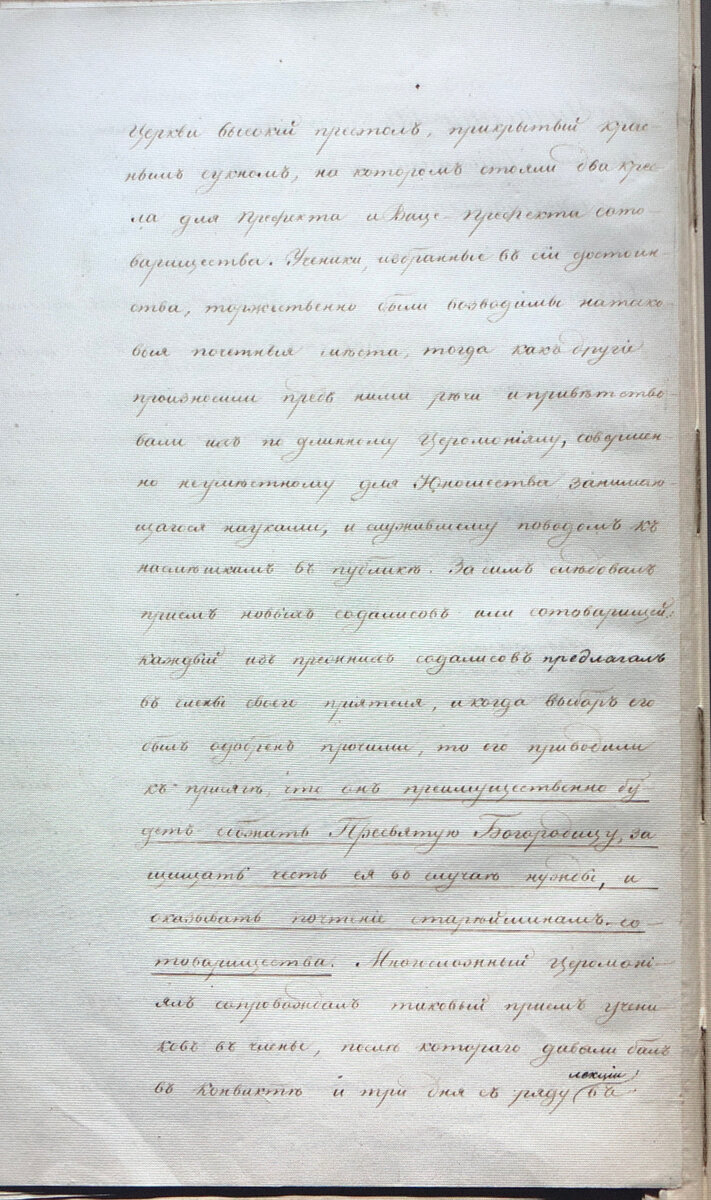 Церкви высокій престолъ, прикрытый крас-
нымъ сукномъ, на которомъ стояли два крес-
ла для Префекта и Вице-Префекта сото-
варищества. Ученики, избранные въ сіи достоин-
ства, торжественно были возводимы на тако-
выя почетныя мѣста, тогда какъ другіе
произносили предъ ними рѣчи и привѣтство-
вали ихъ по длинному Церемоніялу, совершен-
но неумѣстному для Юношества занимаю-
щагося науками, и служившему поводомъ къ
насмѣшкамъ въ публикѣ. За симъ слѣдовалъ
пріемъ новыхъ содалисовъ или сотоварищей:
каждый изъ прежнихъ содалисовъ предлагалъ
въ члены своего пріятеля, и когда выборъ его
былъ одобренъ прочими, то его приводили
къ присягѣ, что онъ преимущественно бу-
детъ обожать Пресвятую Богородицу, за-
щищать честь ея во случаѣ нужды, и
оказывать почтеніе старѣйшинамъ со-
товарищества. Многосложный Церемоні-
ялъ сопровождалъ таковый пріемъ учени-
ковъ въ члены, послѣ котораго давали балъ
въ конвиктѣ и три дня съ ряду лекціи въ